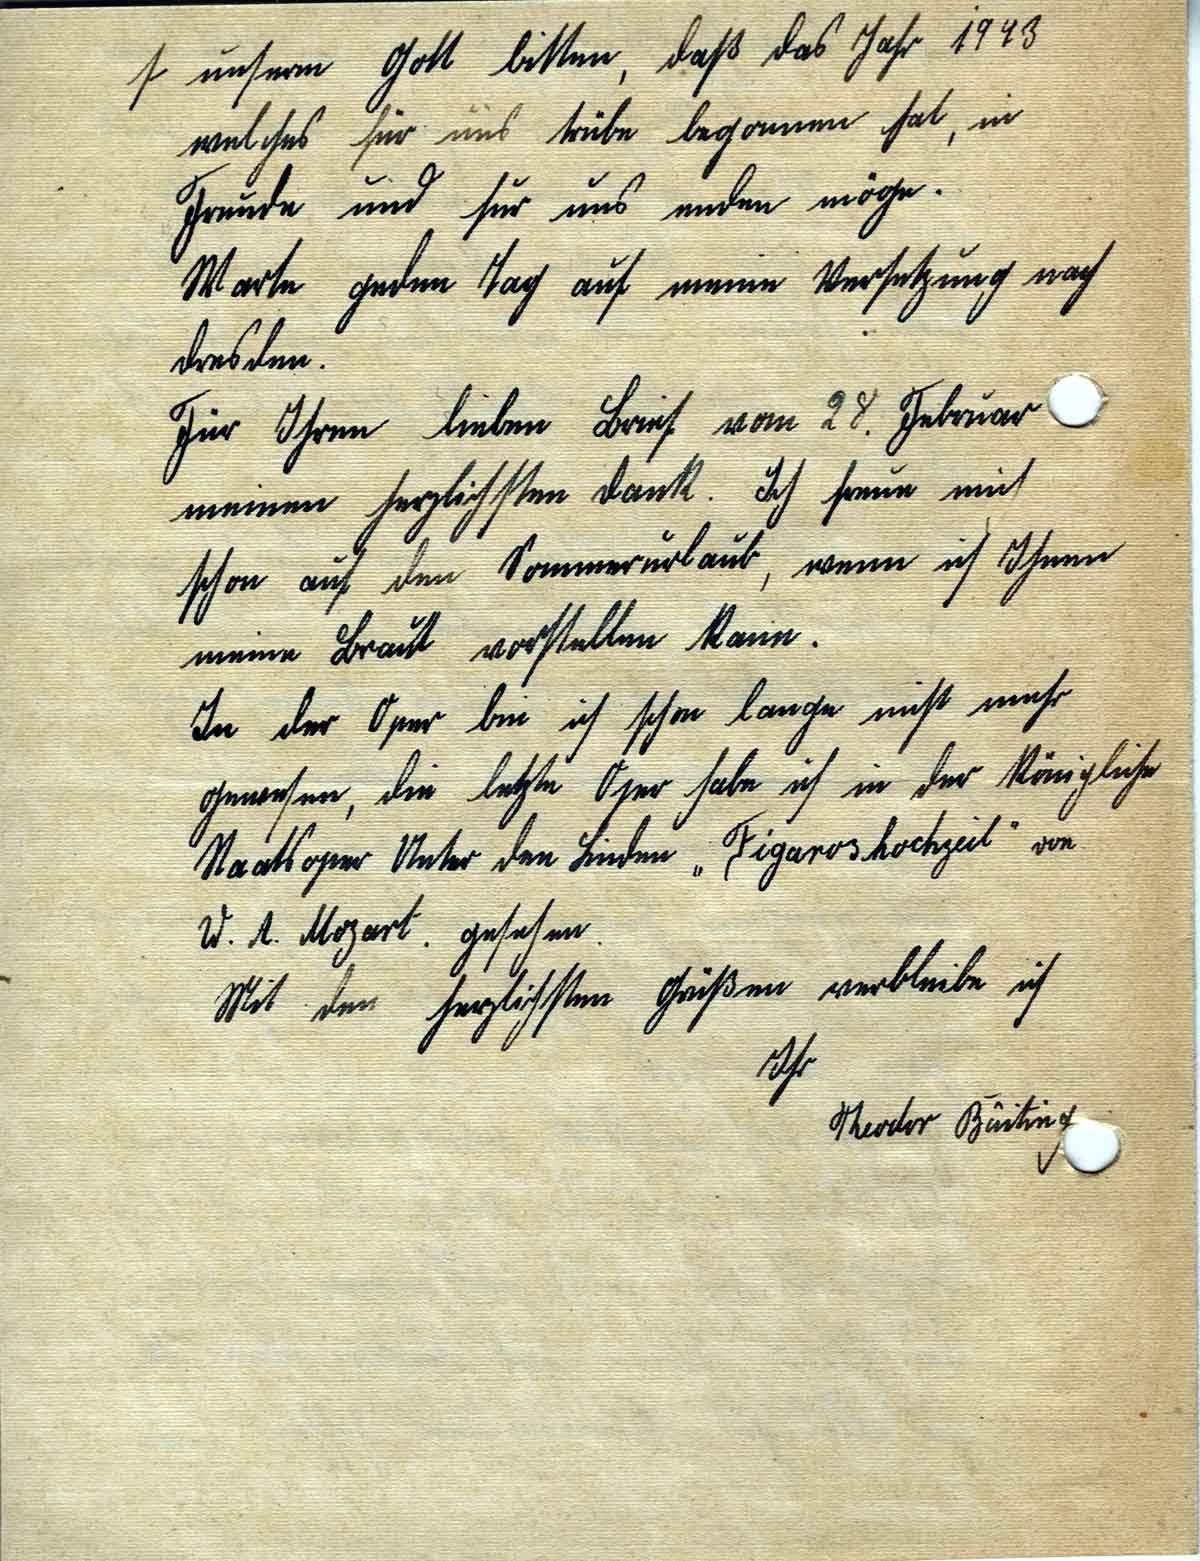 unserem Gott bitten, daß das Jahr 1943
welches für uns trübe begonnen hat, in
Freude und für uns enden möge.
Warte geden Tag auf meine Versetzung nach
Dresden.
Für Ihren lieben Brief vom 28. Februar
meinen herzlichsten Dank. Ich freue mich
schon auf den Sommerurlaub, wenn ich Ihnen
meine Braut vorstellen kann.
In der Oper bin ich schon lange nicht mehr
gewesen, die letzte Oper habe ich in der Königliche
Staatsoper Unter den Linden „Figaros hochzeit" von
W. A. Mozart. gesehen.
Mit den herzlichsten Grüßen verbleibe ich
Ihr
Theodor